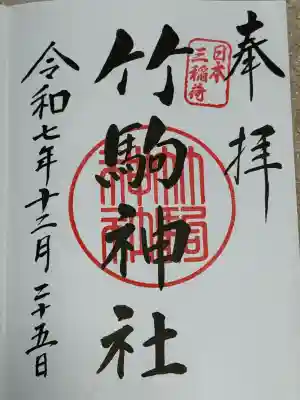 奉拝
日本
三稲荷
竹駒神社
令和七年十二月二十五日